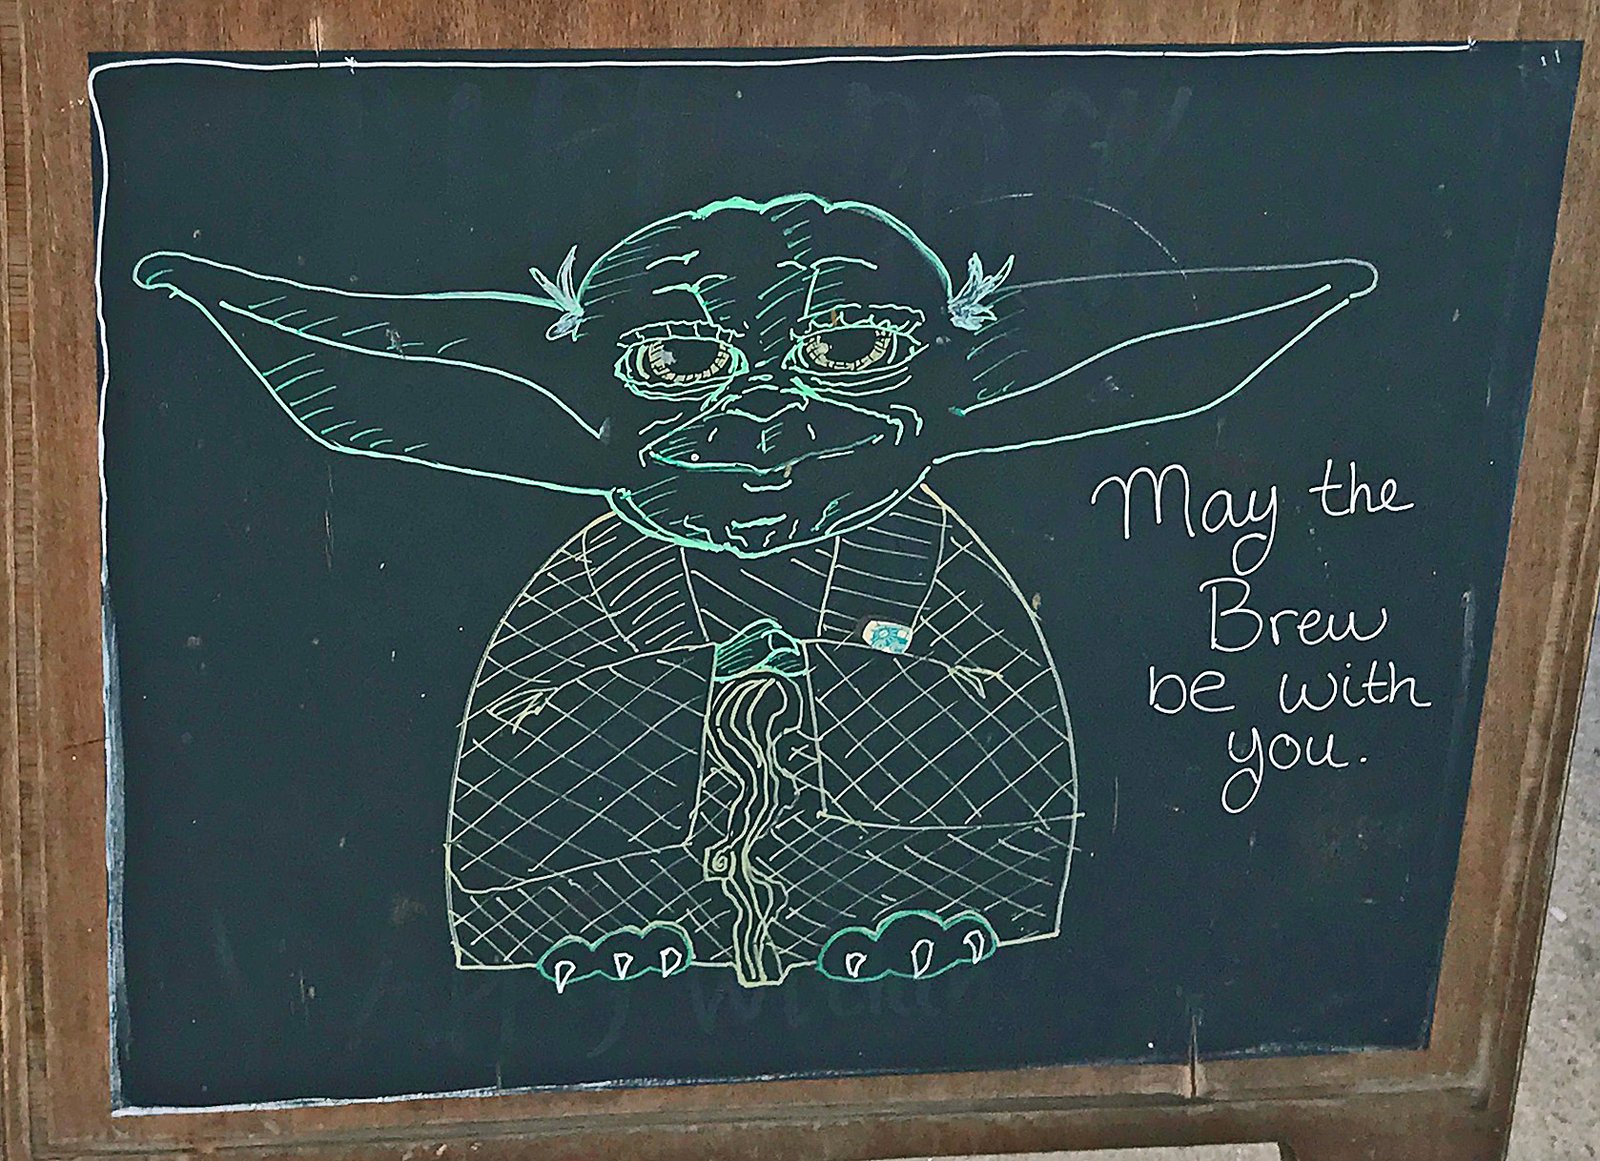 May the
Brew
be with
you.